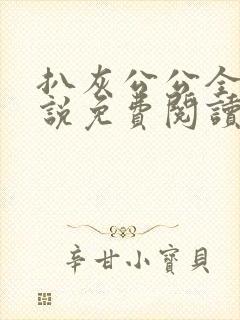 扒灰公公全
說免費閱讀
辛甘小寶貝